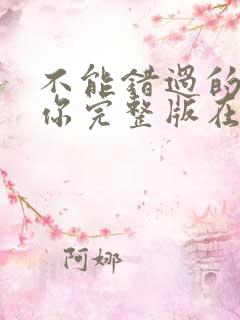 不能错过的
你完整版在
阿娜